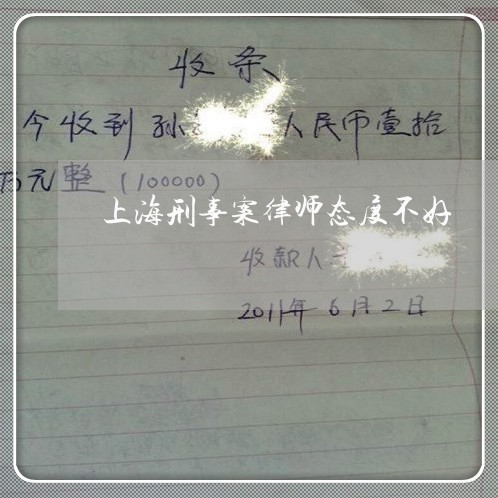 收条
今收到孙 人民币壹拾
万元整（100000）
上海刑事案律师态度不好
收款人
2011年6月2日